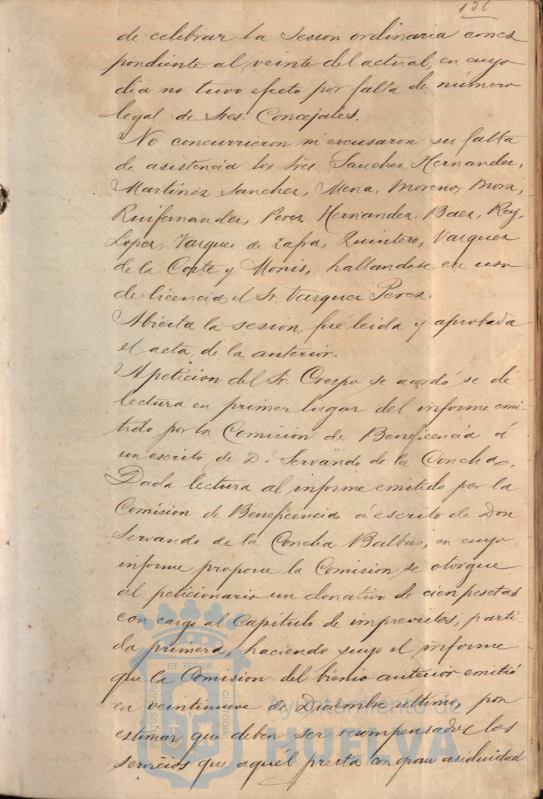 136
de celebrar la sesion ordinaria corres
pondiente al veinte del actual, en cuyo
dia no tuvo efecto por falta de número
legal de Sres. Concejales.
No concurrieron ni excusaron su falta
de asistencia los Sres. Sanchez Hernandez,
Martinez Sanchez, Mena, Moreno, Mora,
Ruifernandez, Perez Hernandez, Baez, Rey,
Lopez, Vazquez de Zafra, Quintero, Vazquez
de la Corte y Monis, hallandose en uso
de licencia el Sr. Vazquez Perez.
Abierta la sesion, fué leida y aprobada
el acta de la anterior.
A peticion del Sr. Crespo se acordó se dé
lectura en primer lugar del informe emi-
tido por la Comision de Beneficencia á
un escrito de D. Servando de la Concha.
Dada lectura al informe emitido por la
Comision de Beneficencia á escrito de Don
Servando de la Concha Balbas, en cuyo
informe propone la Comision se otorgue
al peticionario un donativo de cien pesetas
con cargo al Capítulo de imprevistos, parti-
da primera, haciendo suyo el informe
que la Comision del bienio anterior emitió
en veintinueve de Diciembre último, por
estimar que deben ser recompensados los
servicios que aquél presta con gran asiduidad
ET TERRÆ
Ayuntamiento de
HUELVA